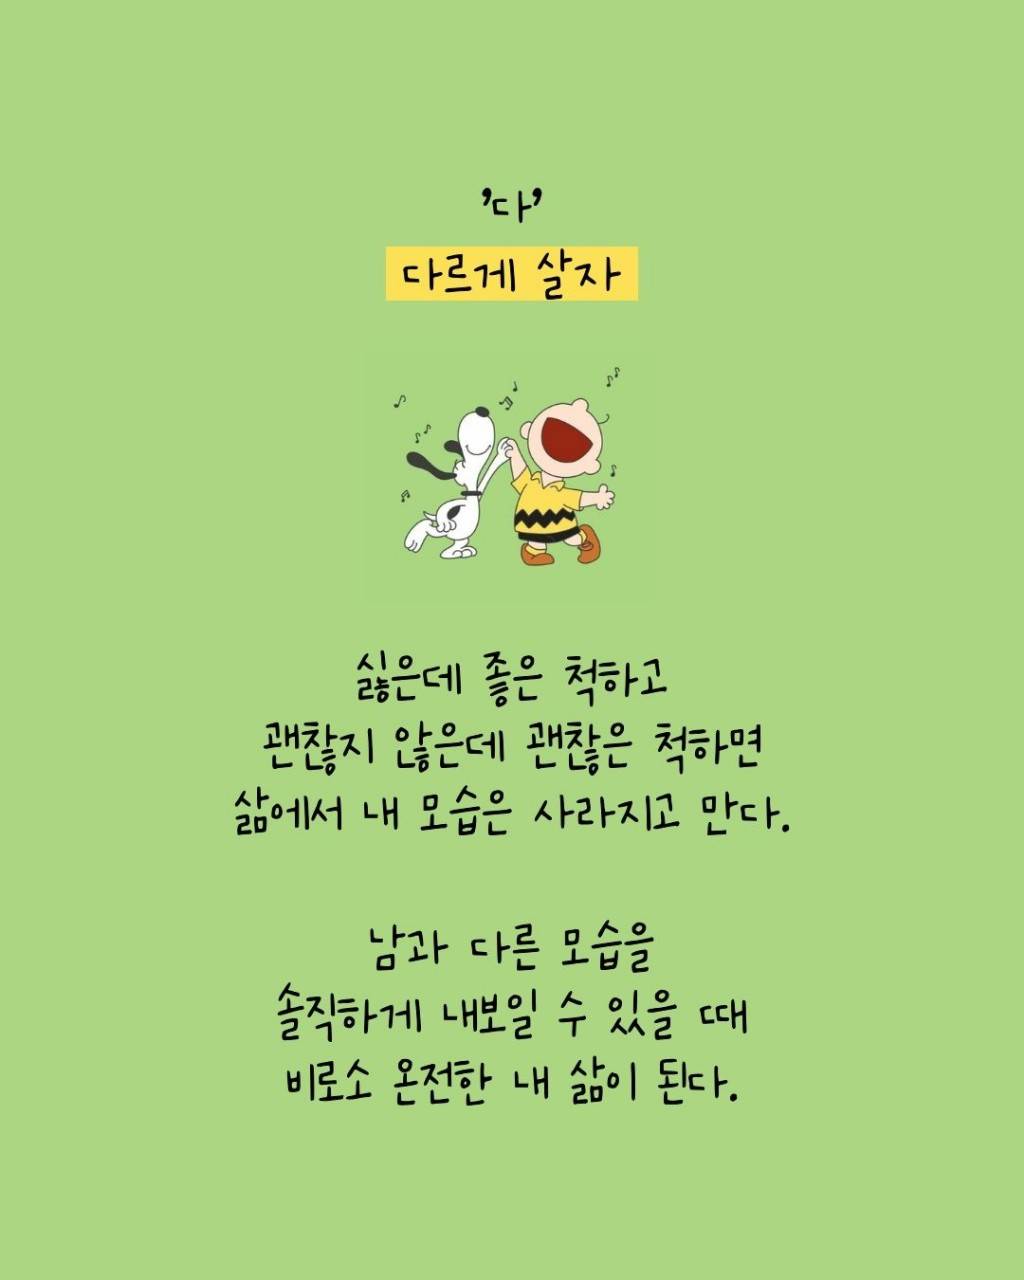 ’다’
다르게 살자
싫은데 좋은 척하고
괜찮지 않은데 괜찮은 척하면
삶에서 내 모습은 사라지고 만다.
남과 다른 모습을
솔직하게 내보일 수 있을 때
비로소 온전한 내 삶이 된다.